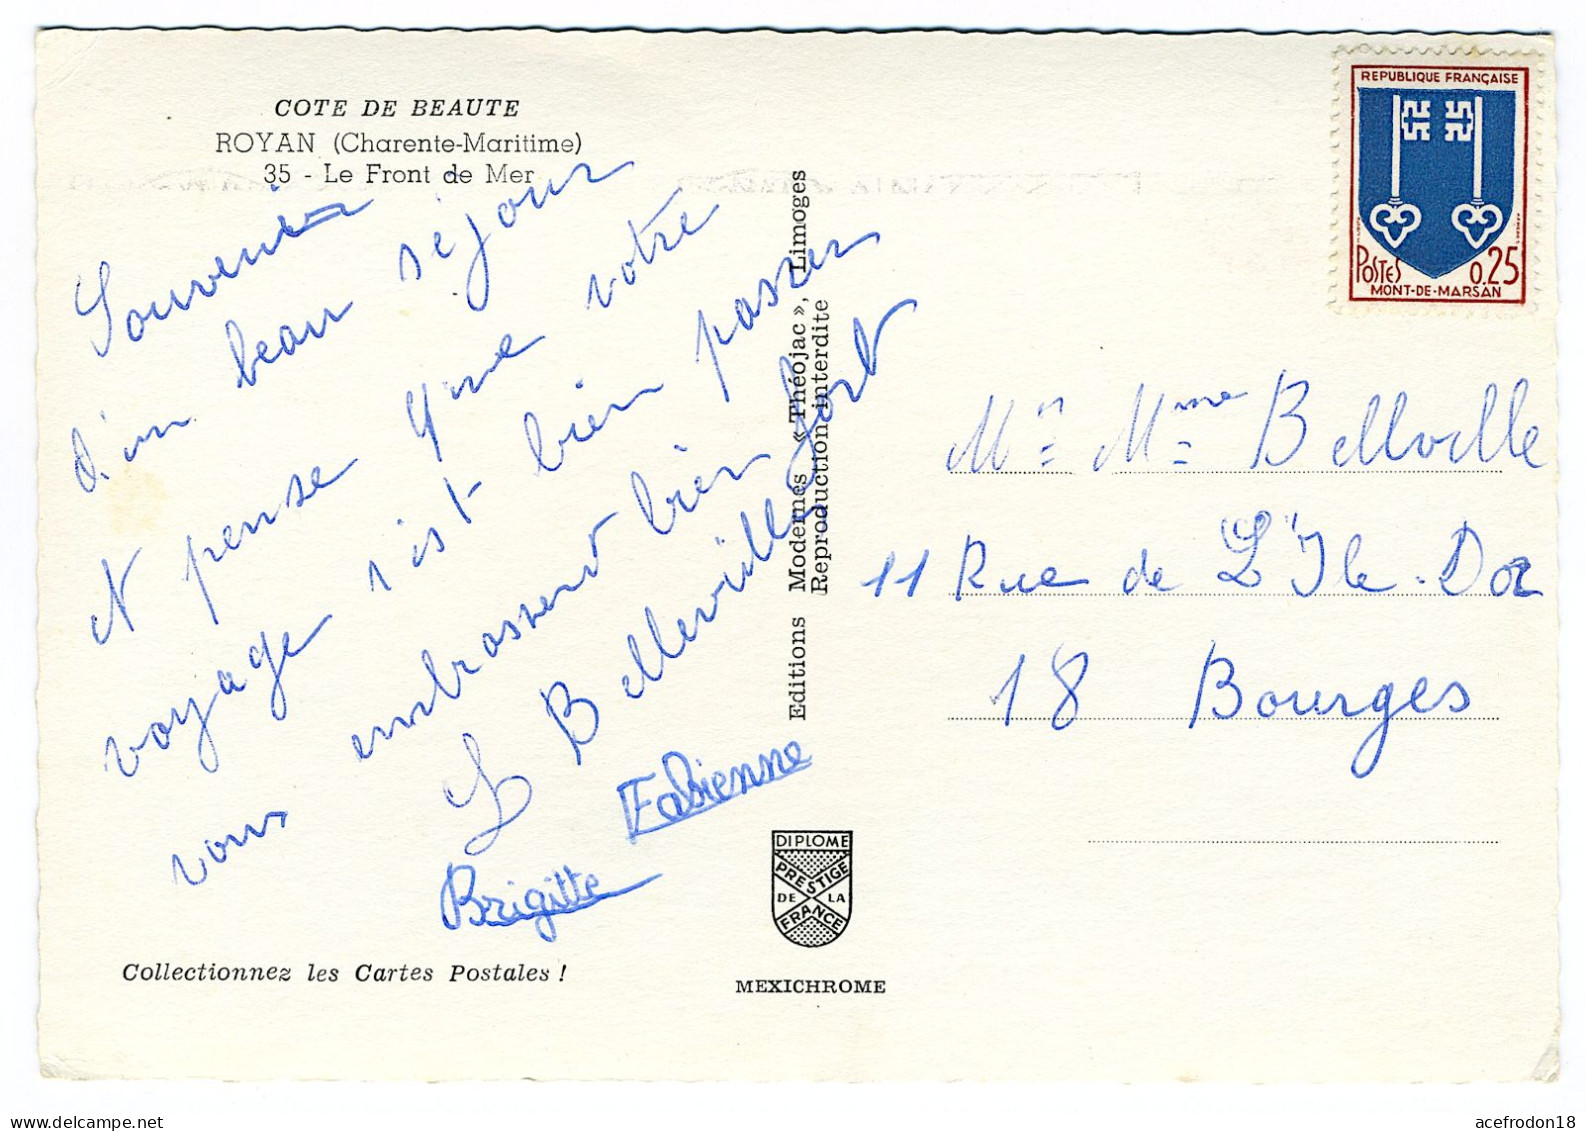 COTE DE BEAUTE
ROYAN (Charente-Maritime)
35 - Le Front de Mer
Souvenir
d'un beau séjour
N pense que votre
voyage s'ist bien passer
vous embrassend bien fort
L Belleville
Fabienne
Brigitte
Collectionnez les Cartes Postales !
Editions Modernes « Théojac », Limoges
Reproduction interdite
DIPLOME
PRESTIGE
DE LA
FRANCE
MEXICHROME
REPUBLIQUE FRANÇAISE
POSTES 0,25
MONT-DE-MARSAN
Mr Mme Bellville
11 Rue de L'Ile Dor
18 Bourges
delcampe.net
acefrodon18